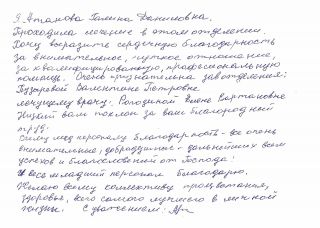 Я Атамова Галина Даниловна.
Проходила лечение в этом отделении.
Хочу выразить сердечную благодарность
за внимательное, чуткое отношение,
за квалифицированную, профессиональную
помощь. Очень признательна зав отделения:
Бударевой Валентине Петровне
лечащему врачу: Рогозиной Елене Сергеевне
Низкий вам поклон за ваш благородный
труд.
мед персоналу благодарность - все очень
внимательные, добродушные - дальнейших всем
успехов и благословений от Господа!
И весь младший персонал благодарю.
Желаю всему коллективу процветания,
здоровья, всего самого лучшего в личной
жизни. С уважением: